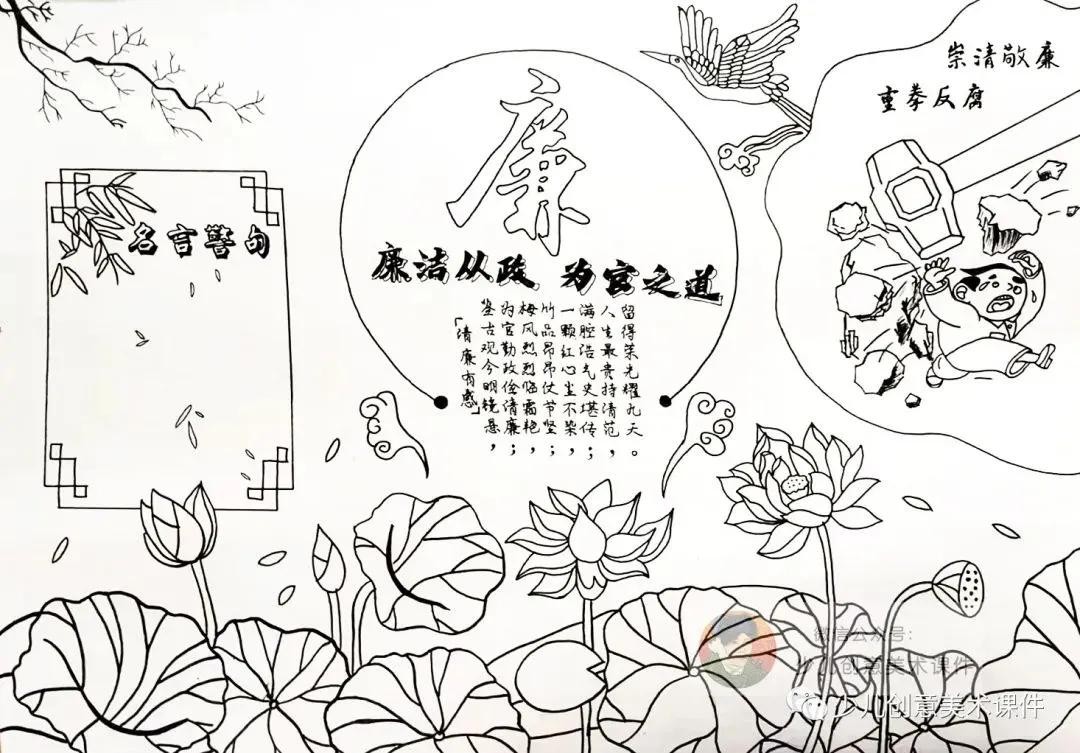 崇清敬廉
重拳反腐
廉
名言警句
廉洁从政 为官之道
「清廉有感」
鉴古观今明镜悬，
为官勤政俭清廉；
梅风烈烈临霜艳；
竹品昂昂仗节坚；
一颗红心尘不染，
满腔浩气史堪传；
人生最贵持清范，
留得荣光耀九天。
微信公众号：
少儿创意美术课件
少儿创意美术课件